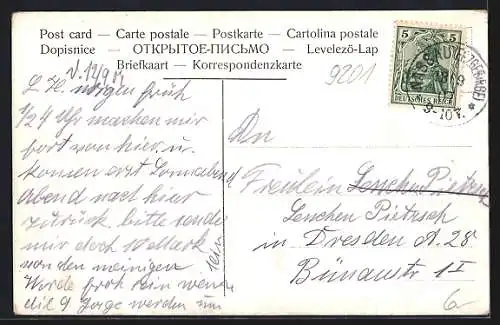 Post card — Carte postale — Postkarte — Cartolina postale
Dopisnice — ОТКРЫТОЕ-ПИСЬМО — Levelező-Lap
Briefkaart — Korrespondenzkarte
9201
5 5
DEUTSCHES REICH
L. H. morgen früh
1/2 4 Uhr machen wir
fort von hier u.
kommen erst Sonnabend
abend nach hier
zurück. bitte sende
mir doch
von den meinigen
Werde froh sein wenn
die 9 Tage werden um
sein
An
Fräulein Lenchen Pietzsch
Lenchen Pietzsch
in Dresden A. 28
Bünaustr 1 I